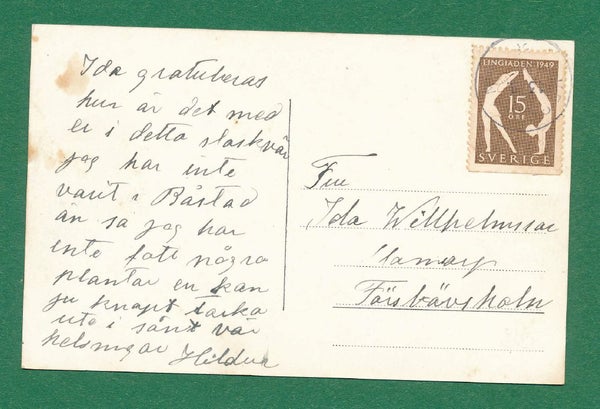 Ida gratuleras
hur är det med
er i detta slaskvär
jag har inte
varit i Båstad
än så jag har
inte fått några
plantor en kan
ju knapt tänka
ute i sånt vär
helsningar Hildur
LINGIADEN·1949
15
ÖRE
SVERIGE
Fru
Ida Willhelmsson
Förslövsholm